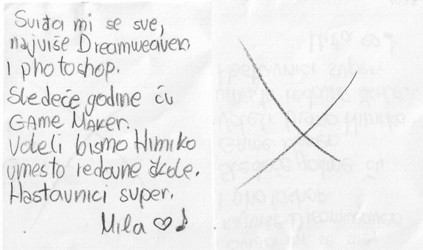 Sviđa mi se sve,
najviše Dreamweaver
i photoshop.
Sledeće godine ću
GAME MAKER.
Voleli bismo Himiko
umesto redovne škole.
Nastavnici super.
Mila ♡♪